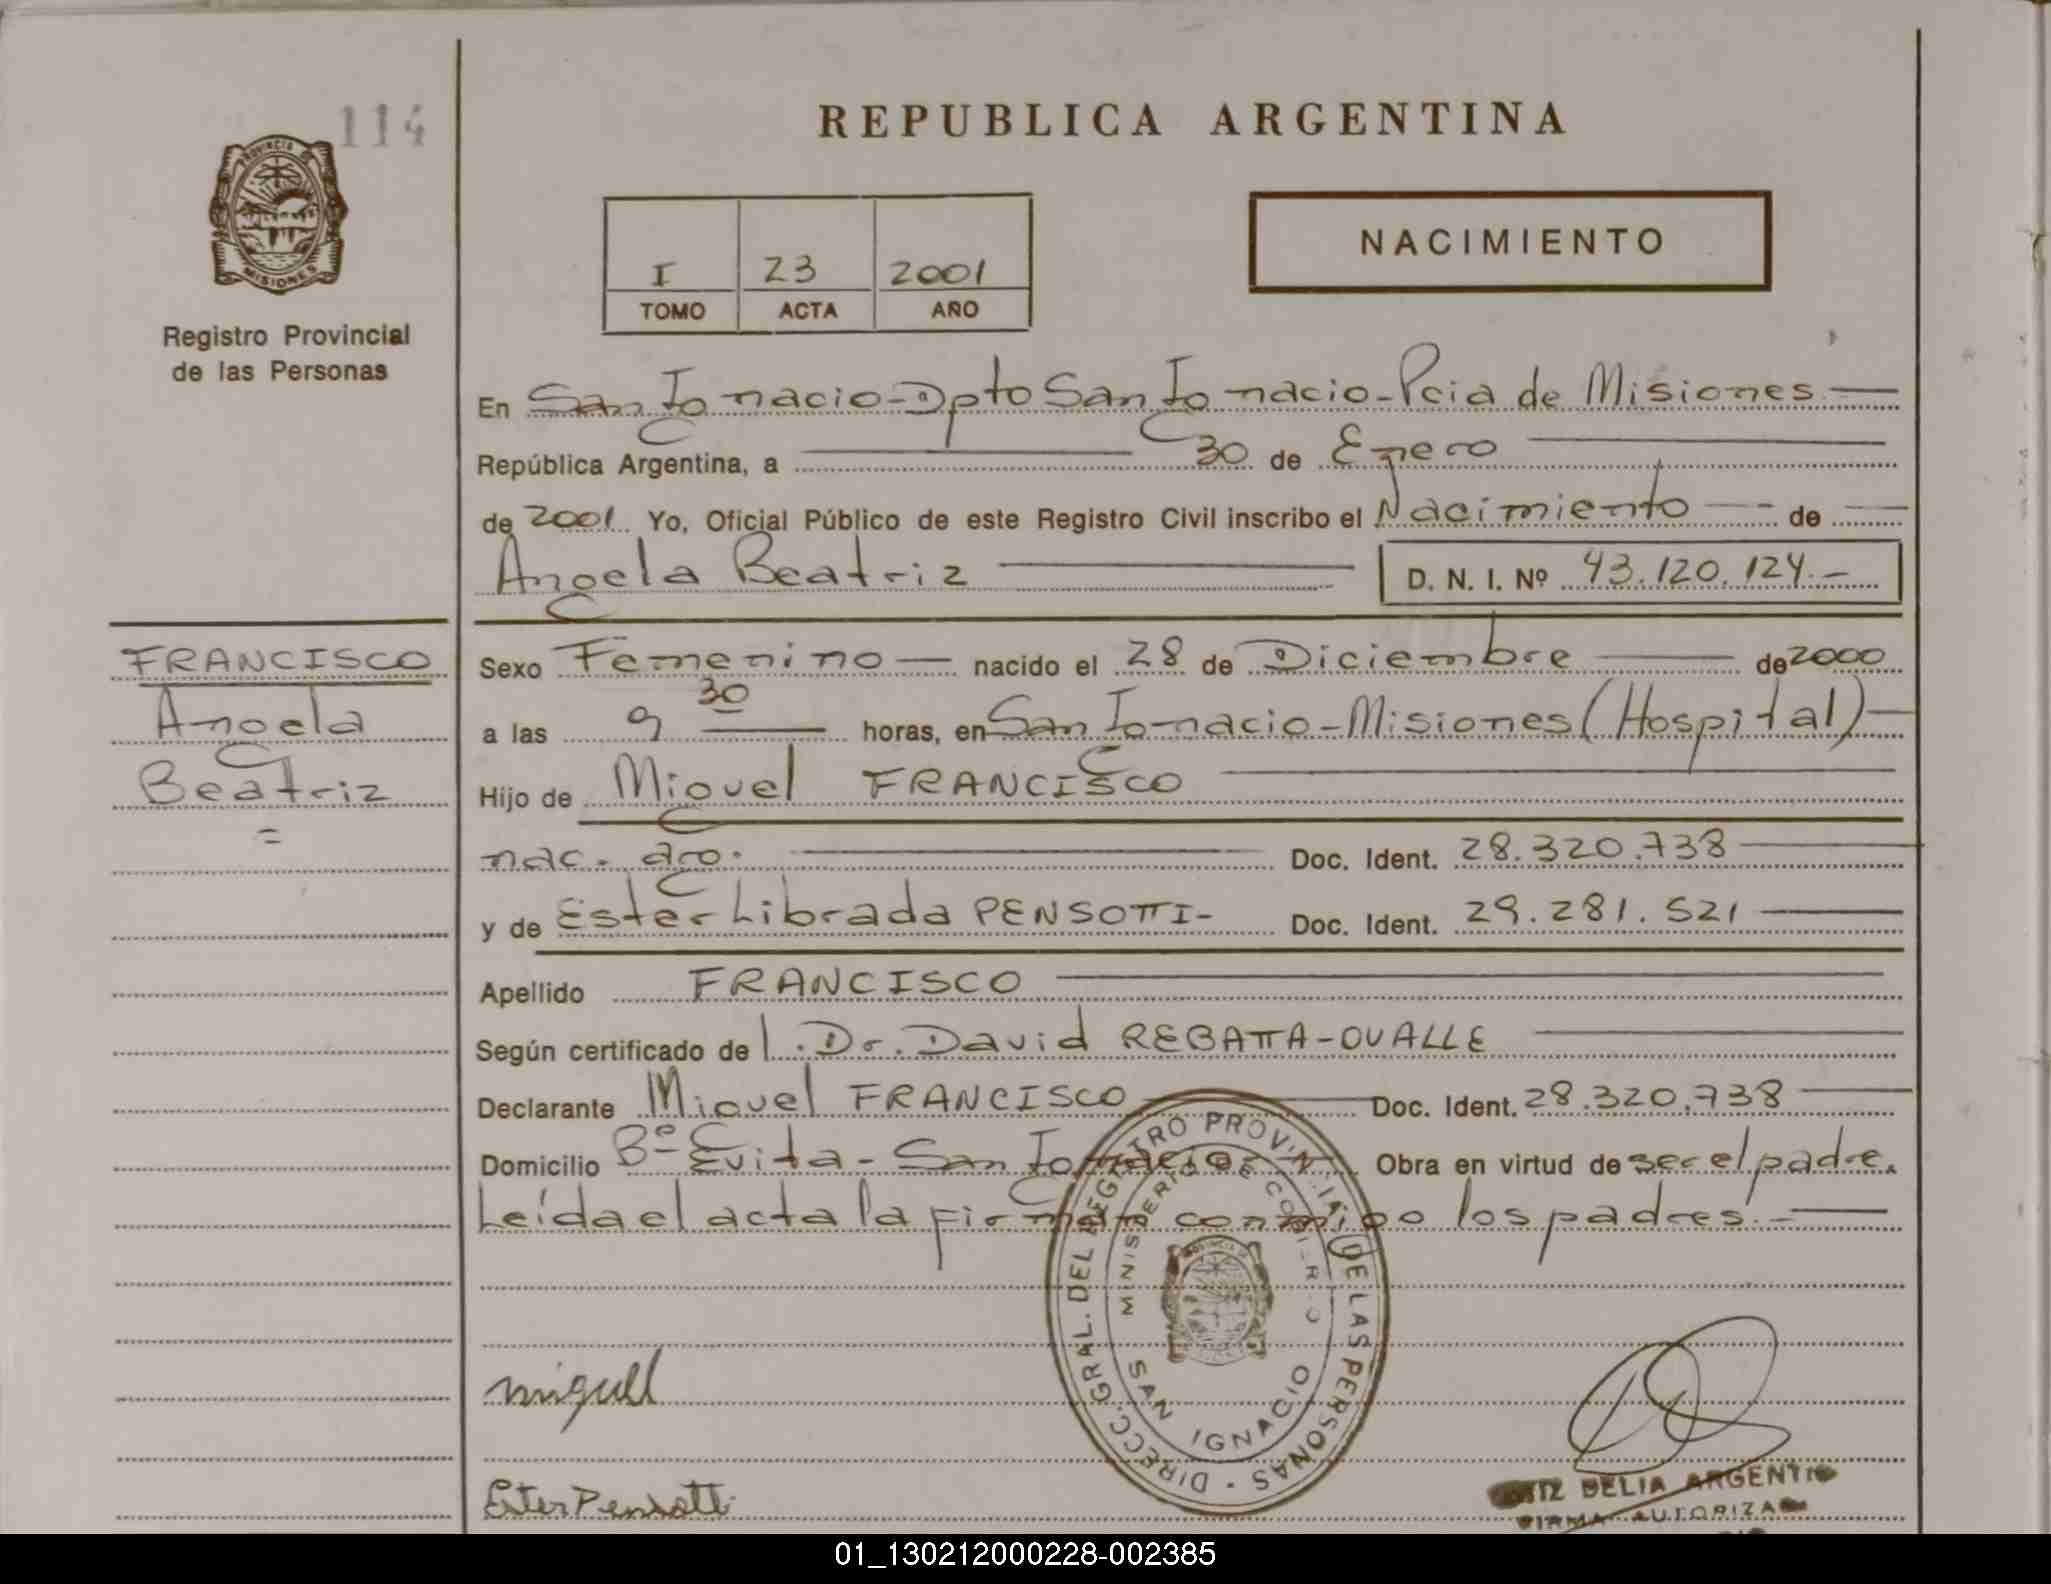 114
REPUBLICA ARGENTINA
PROVINCIA DE
MISIONES
Registro Provincial
de las Personas
I 23 2001
TOMO ACTA AÑO
NACIMIENTO
En San Ignacio - Dpto San Ignacio - Pcia de Misiones
República Argentina, a 30 de Enero
de 2001 Yo, Oficial Público de este Registro Civil inscribo el Nacimiento de
Angela Beatriz D. N. I. Nº 43.120.124.-
FRANCISCO
Angela
Beatriz
=
Sexo Femenino nacido el 28 de Diciembre de 2000
a las 9 30 horas, en San Ignacio - Misiones (Hospital)
Hijo de Miguel FRANCISCO
nac. arg. Doc. Ident. 28.320.738
y de Ester Librada PENSOTTI- Doc. Ident. 29.281.521
Apellido FRANCISCO
Según certificado de l. Dr. David REBATTA-OVALLE
Declarante Miguel FRANCISCO Doc. Ident. 28.320.738
Domicilio Bº Evita - San Ignacio- Obra en virtud de ser el padre.
Leída el acta la firman conmigo los padres.-
DIRECC. GRAL. DEL REGISTRO PROVINCIAL DE LAS PERSONAS
MINISTERIO DE GOBIERNO
SAN IGNACIO
miguel
Ester Pensotti
DELIA ARGENTI
FIRMA AUTORIZA
01_130212000228-002385